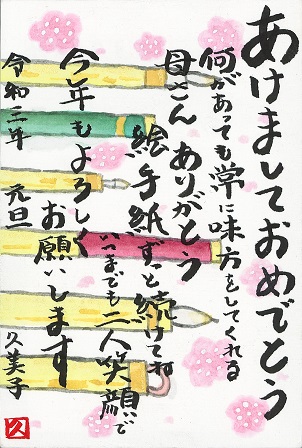 あけましておめでとう
何があっても常に味方をしてくれる
母さん ありがとう
絵手紙ずっと続けてね
いつまでも二人笑顔で
今年もよろしく
お願いします
令和三年 元旦
久美子
久